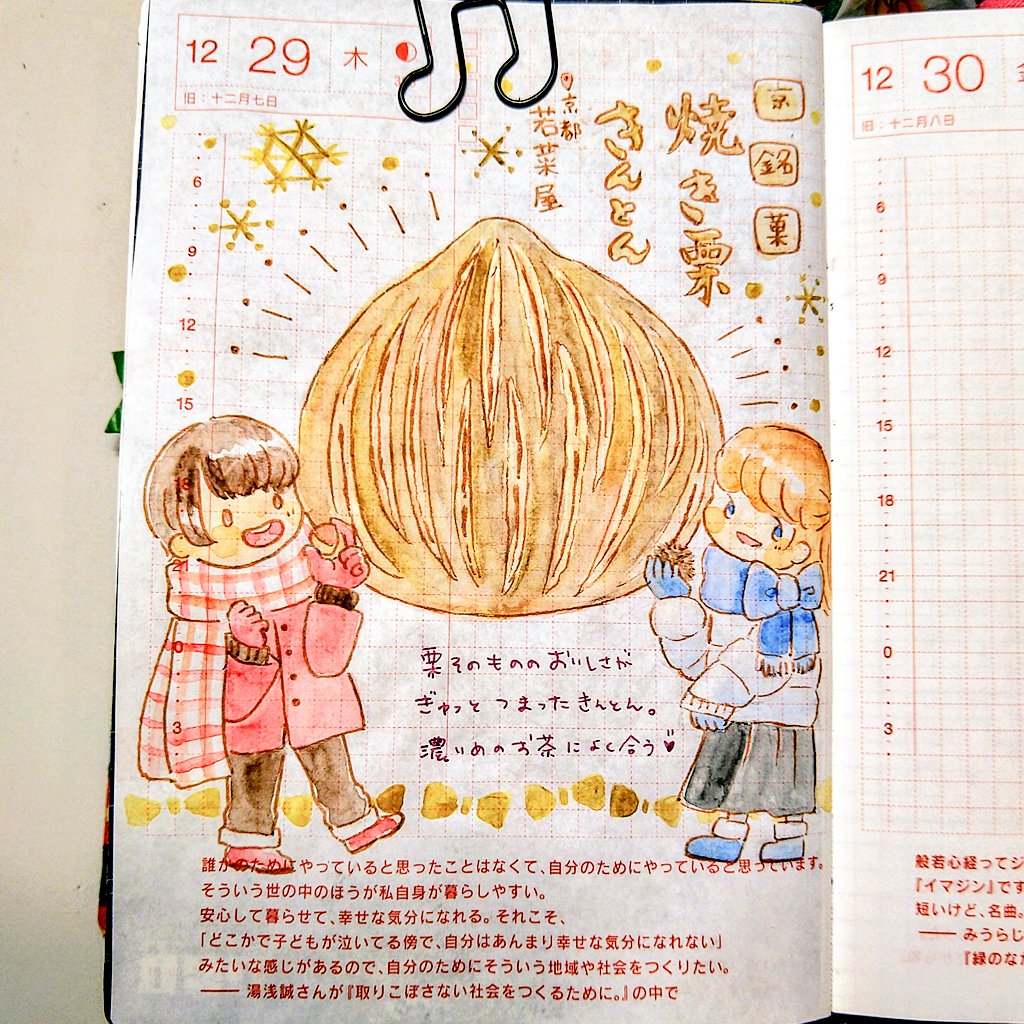 12 29 木
旧：十二月七日
京銘菓
焼き栗
きんとん
京都
若菜屋
6
9
12
15
18
21
0
3
栗そのもののおいしさが
ぎゅっと つまったきんとん。
濃いめのお茶によく合う♥
誰かのためにやっていると思ったことはなくて、自分のためにやっていると思っています。
そういう世の中のほうが私自身が暮らしやすい。
安心して暮らせて、幸せな気分になれる。それこそ、
「どこかで子どもが泣いてる傍で、自分はあんまり幸せな気分になれない」
みたいな感じがあるので、自分のためにそういう地域や社会をつくりたい。
── 湯浅誠さんが『取りこぼさない社会をつくるために。』の中で
12 30 金
旧：十二月八日
6
9
12
15
18
21
0
3
般若心経ってジ
『イマジン』です
短いけど、名曲。
── みうらじ
『緑のなか